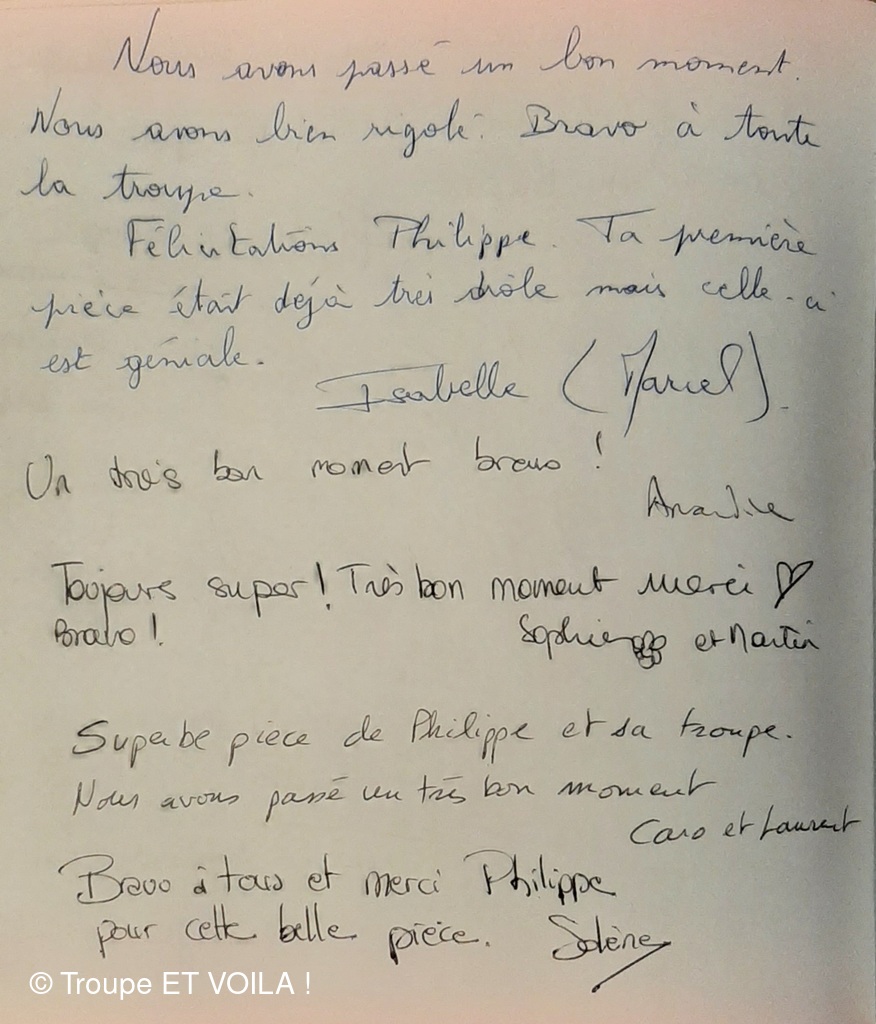 Nous avons passé un bon moment.
Nous avons bien rigolé. Bravo à toute
la troupe.
Félicitations Philippe. Ta première
pièce était déjà très drôle mais celle-ci
est géniale.
Isabelle (Marcel).
Un très bon moment bravo !
Toujours super! Très bon moment merci ♡
Bravo!
Sophie et Martin
Superbe pièce de Philippe et sa troupe.
Nous avons passé un très bon moment
Caro et Laurent
Bravo à tous et merci Philippe
pour cette belle pièce. Solène
© Troupe ET VOILA !